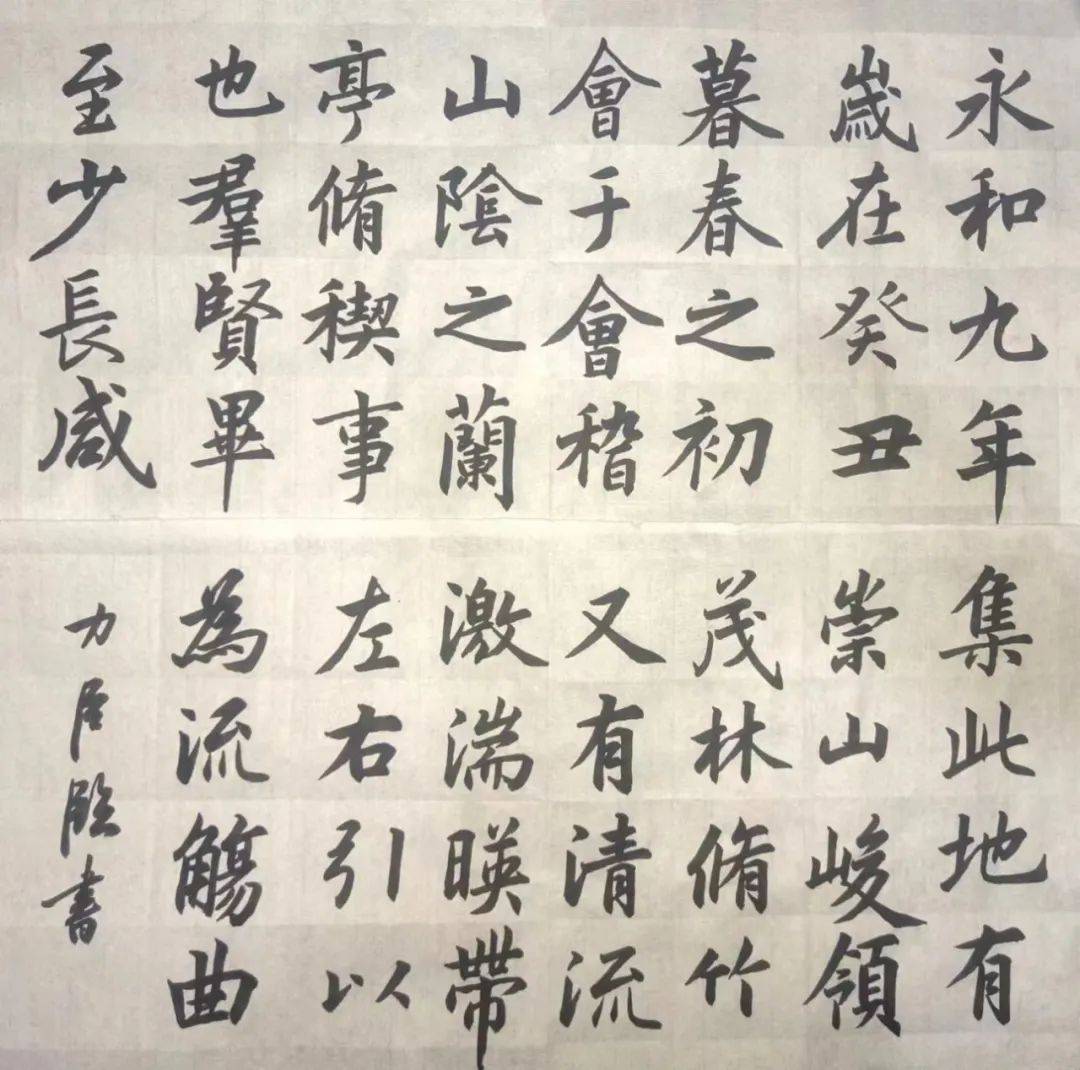 永和九年
歲在癸丑
暮春之初
會于會稽
山陰之蘭
亭脩稧事
也羣賢畢
至少長咸
集此地有
崇山峻領
茂林脩竹
又有清流
激湍暎帶
左右引以
為流觴曲
力臨書